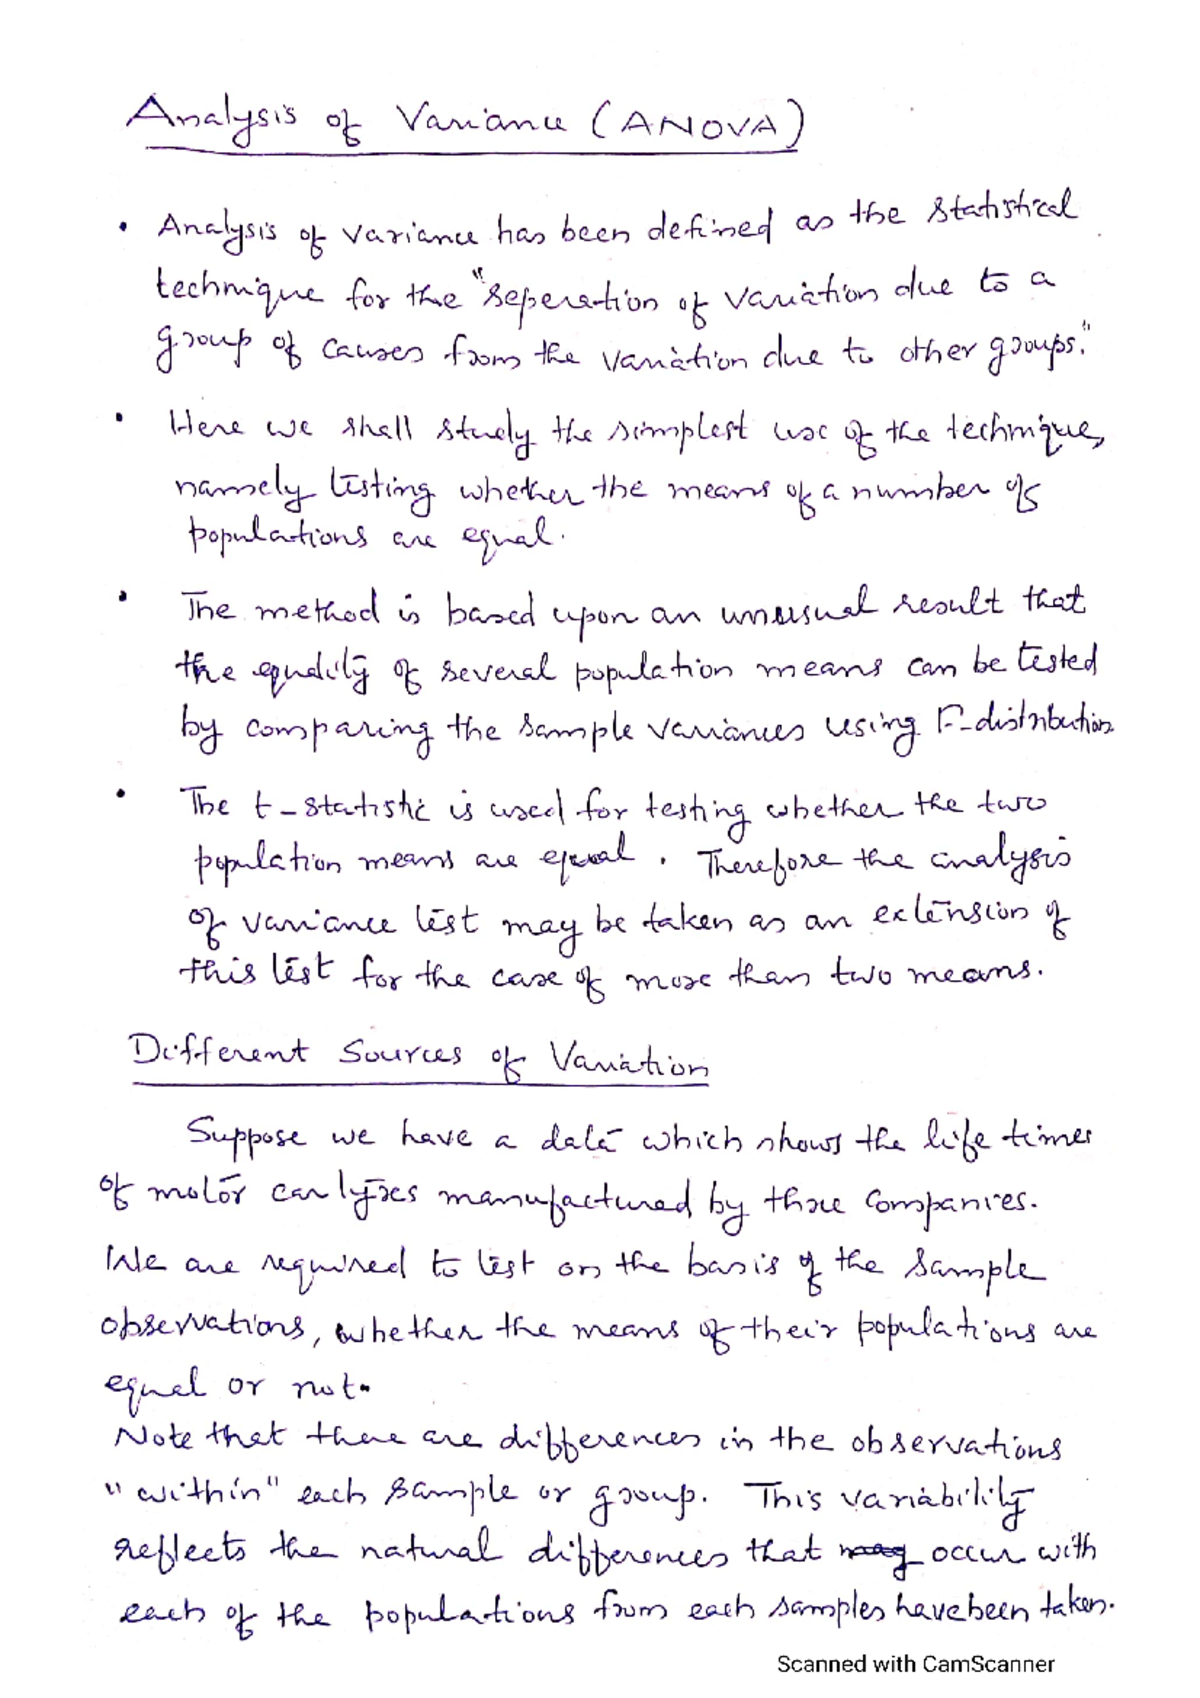 Analysis of Variance (ANOVA)
• Analysis of variance has been defined as the statistical
technique for the "seperation of variation due to a
group of causes from the variation due to other groups."
• Here we shall study the simplest use of the technique,
namely testing whether the means of a number of
populations are equal.
• The method is based upon an unusual result that
the equality of several population means can be tested
by comparing the sample variances using F-distribution.
• The t-statistic is used for testing whether the two
population means are equal. Therefore the analysis
of variance test may be taken as an extension of
this test for the case of more than two means.
Different Sources of Variation
Suppose we have a data which shows the life times
of motor car tyres manufactured by three companies.
We are required to test on the basis of the sample
observations, whether the means of their populations are
equal or not.
Note that there are differences in the observations
"within" each sample or group. This variability
reflects the natural differences that may occur with
each of the populations from each samples have been taken.
Scanned with CamScanner